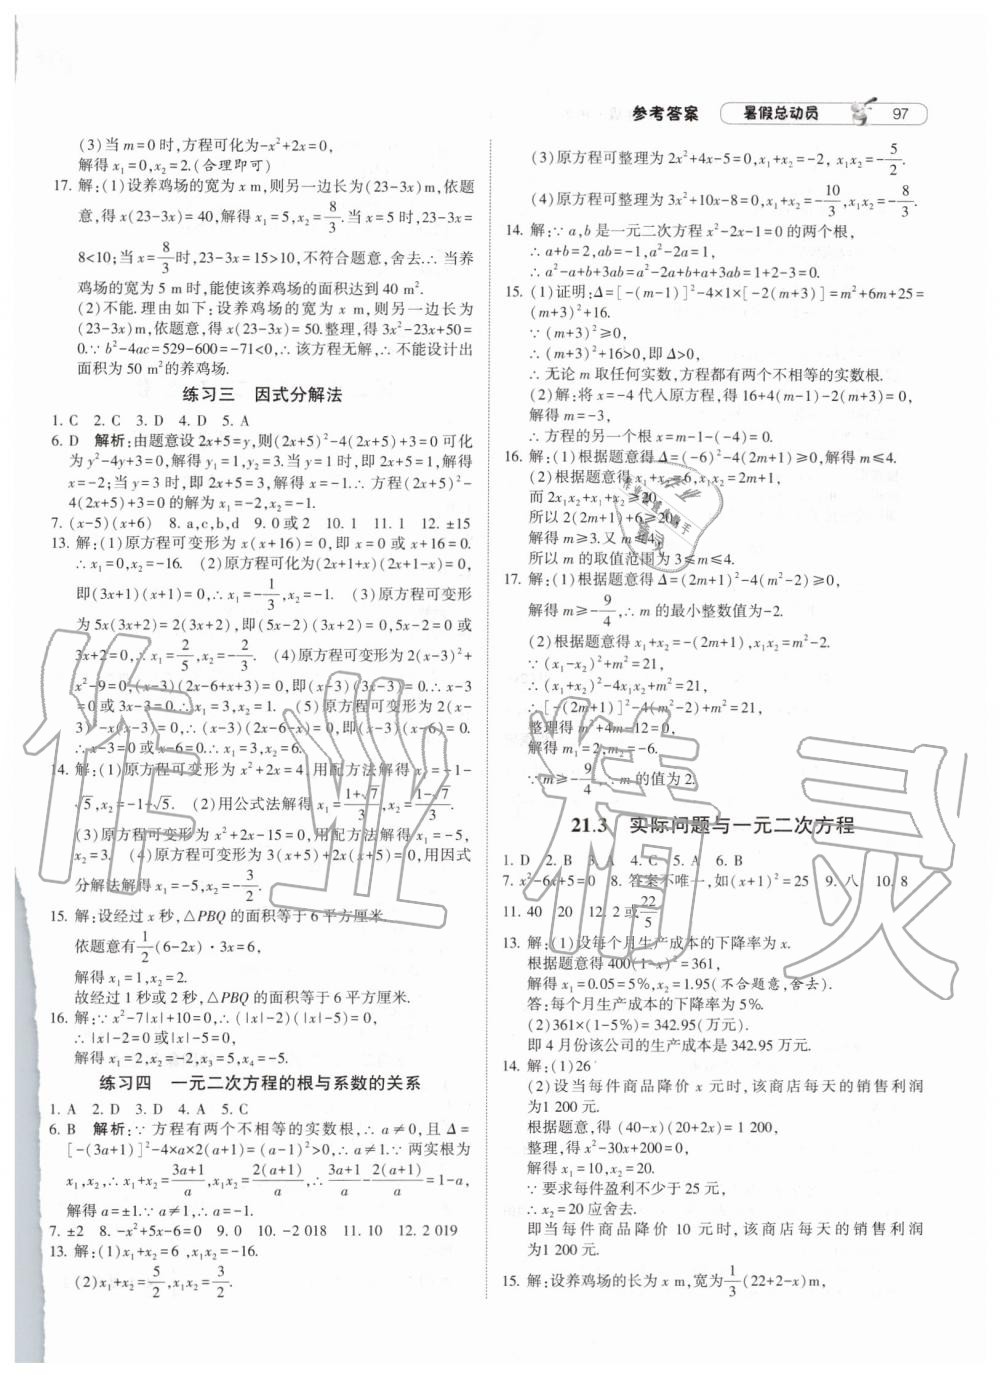 参考答案 暑假总动员 97
(3)当 m=0 时,方程可化为-x²+2x=0,
解得 x₁=0,x₂=2.(合理即可)
17. 解:(1)设养鸡场的宽为 x m,则另一边长为(23-3x)m,依题
意,得 x(23-3x)=40,解得 x₁=5,x₂=8/3.当 x=5 时,23-3x=
8<10;当 x=8/3时,23-3x=15>10,不符合题意,舍去.∴ 当养
鸡场的宽为 5 m 时,能使该养鸡场的面积达到 40 m².
(2)不能.理由如下:设养鸡场的宽为 x m,则另一边长为
(23-3x)m,依题意,得 x(23-3x)=50.整理,得 3x²-23x+50=
0.∵ b²-4ac=529-600=-71<0,∴ 该方程无解,∴ 不能设计出
面积为 50 m²的养鸡场.
练习三 因式分解法
1. C 2. C 3. D 4. D 5. A
6. D 解析:由题意设 2x+5=y,则(2x+5)²-4(2x+5)+3=0 可化
为 y²-4y+3=0,解得 y₁=1,y₂=3.当 y=1 时,即 2x+5=1,解得
x=-2;当 y=3 时,即 2x+5=3,解得 x=-1.∴ 方程(2x+5)²-
4(2x+5)+3=0 的解为 x₁=-2,x₂=-1.
7. (x-5)(x+6) 8. a,c,b,d 9. 0 或 2 10. 1 11. 1 12. ±15
13. 解:(1)原方程可变形为 x(x+16)=0,即 x=0 或 x+16=0.
∴ x₁=0,x₂=-16. (2)原方程可化为(2x+1+x)(2x+1-x)=0,
即(3x+1)(x+1)=0,∴ x₁=-1/3,x₂=-1. (3)原方程可变形
为 5x(3x+2)=2(3x+2),即(5x-2)(3x+2)=0,5x-2=0 或
3x+2=0,∴ x₁=2/5,x₂=-2/3. (4)原方程可变形为 2(x-3)²+
x²-9=0,(x-3)(2x-6+x+3)=0,即(x-3)(3x-3)=0.∴ x-3
=0 或 3x-3=0.∴ x₁=3,x₂=1. (5)原方程可变形为 2(x-
3)²-x(x-3)=0,(x-3)(2x-6-x)=0,即(x-3)(x-6)=0.
∴ x-3=0 或 x-6=0.∴ x₁=3,x₂=6.
14. 解:(1)原方程可变形为 x²+2x=4,用配方法解得 x₁=-1-
√5,x₂=-1+√5. (2)用公式法解得 x₁=(1+√7)/3,x₂=(1-√7)/3.
(3)原方程可变形为 x²+2x-15=0,用配方法解得 x₁=-5,
x₂=3. (4)原方程可变形为 3(x+5)+2x(x+5)=0,用因式
分解法解得 x₁=-5,x₂=-3/2.
15. 解:设经过 x 秒,△PBQ 的面积等于 6 平方厘米.
依题意有1/2(6-2x)·3x=6,
解得 x₁=1,x₂=2.
故经过 1 秒或 2 秒,△PBQ 的面积等于 6 平方厘米.
16. 解:∵ x²-7|x|+10=0,∴ (|x|-2)(|x|-5)=0,
∴ |x|-2=0 或|x|-5=0,
解得 x₁=2,x₂=-2,x₃=5,x₄=-5.
练习四 一元二次方程的根与系数的关系
1. A 2. D 3. D 4. A 5. C
6. B 解析:∵ 方程有两个不相等的实数根,∴ a≠0,且 Δ=
[-(3a+1)]²-4×a×2(a+1)=(a-1)²>0,∴ a≠1.∵ 两实根为
x₁,x₂,∴ x₁+x₂=(3a+1)/a,x₁x₂=2(a+1)/a,∴ (3a+1)/a-2(a+1)/a=1-a,
解得 a=±1.∵ a≠1,∴ a=-1.
7. ±2 8. -x²+5x-6=0 9. 0 10. -2 018 11. 10 12. 2 019
13. 解:(1)x₁+x₂=6 ,x₁x₂=-16.
(2)x₁+x₂=5/2,x₁x₂=3/2.
(3)原方程可整理为 2x²+4x-5=0,x₁+x₂=-2, x₁x₂=-5/2.
(4)原方程可整理为 3x²+10x-8=0,x₁+x₂=-10/3,x₁x₂=-8/3.
14. 解:∵ a,b 是一元二次方程 x²-2x-1=0 的两个根,
∴ a+b=2,ab=-1,a²-2a=1,
∴ a²-a+b+3ab=a²-2a+b+a+3ab=1+2-3=0.
15. (1)证明:Δ=[-(m-1)]²-4×1×[-2(m+3)]=m²+6m+25=
(m+3)²+16.
∵ (m+3)²≥0,
∴ (m+3)²+16>0,即 Δ>0,
∴ 无论 m 取任何实数,方程都有两个不相等的实数根.
(2)解:将 x=-4 代入原方程,得 16+4(m-1)-2(m+3)=0,
解得 m=-3,
∴ 方程的另一个根 x=m-1-(-4)=0.
16. 解:(1)根据题意得 Δ=(-6)²-4(2m+1)≥0,解得 m≤4.
(2)根据题意得 x₁+x₂=6,x₁x₂=2m+1,
而 2x₁x₂+x₁+x₂≥20,
所以 2(2m+1)+6≥20,
解得 m≥3.又 m≤4,
所以 m 的取值范围为 3≤m≤4.
17. 解:(1)根据题意得 Δ=(2m+1)²-4(m²-2)≥0,
解得 m≥-9/4,∴ m 的最小整数值为-2.
(2)根据题意得 x₁+x₂=-(2m+1),x₁x₂=m²-2.
∵ (x₁-x₂)²+m²=21,
∴ (x₁+x₂)²-4x₁x₂+m²=21,
∴ [-(2m+1)]²-4(m²-2)+m²=21,
整理得 m²+4m-12=0,
解得 m₁=2,m₂=-6.
∵ m≥-9/4,∴ m 的值为 2.
21.3 实际问题与一元二次方程
1. D 2. B 3. A 4. C 5. A 6. B
7. x²-6x+5=0 8. 答案不唯一,如(x+1)²=25 9. 八 10. 8
11. 40 20 12. 2 或22/5
13. 解:(1)设每个月生产成本的下降率为 x.
根据题意得 400(1-x)²=361,
解得 x₁=0.05=5%,x₂=1.95(不合题意,舍去).
答:每个月生产成本的下降率为 5%.
(2)361×(1-5%)=342.95(万元).
即 4 月份该公司的生产成本是 342.95 万元.
14. 解:(1)26
(2)设当每件商品降价 x 元时,该商店每天的销售利润
为1 200 元.
根据题意,得 (40-x)(20+2x)=1 200,
整理,得 x²-30x+200=0,
解得 x₁=10,x₂=20.
∵ 要求每件盈利不少于 25 元,
∴ x₂=20 应舍去.
即当每件商品降价 10 元时,该商店每天的销售利润为
1 200 元.
15. 解:设养鸡场的长为 x m,宽为1/3(22+2-x)m,
作业精灵